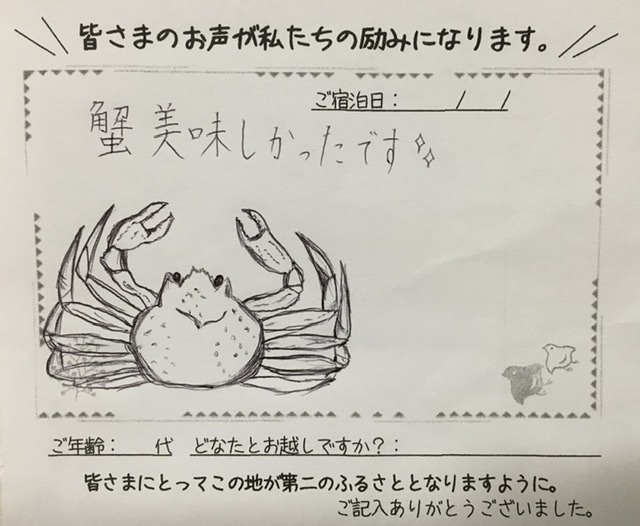 皆さまのお声が私たちの励みになります。
ご宿泊日： / /
蟹美味しかったです
ご年齢： 代 どなたとお越しですか？：
皆さまにとってこの地が第二のふるさととなりますように。
ご記入ありがとうございました。